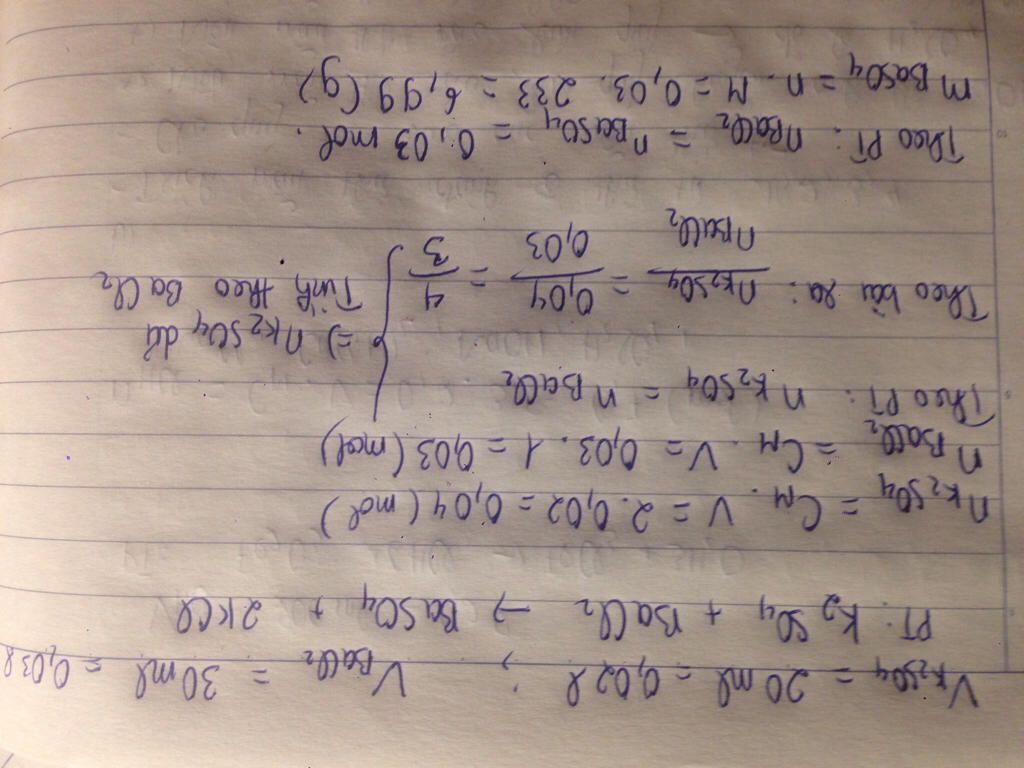 V K₂SO₄ = 20 ml = 0,02 l ; V BaCl₂ = 30 ml = 0,03 l
PT: K₂SO₄ + BaCl₂ → BaSO₄ + 2KCl
n K₂SO₄ = C_M . V = 2 . 0,02 = 0,04 (mol)
n BaCl₂ = C_M . V = 0,03 . 1 = 0,03 (mol)
Theo PT: n K₂SO₄ = n BaCl₂
Theo bài ra: n K₂SO₄ / n BaCl₂ = 0,04 / 0,03 = 4 / 3
} => n K₂SO₄ dư
Tính theo BaCl₂
Theo PT: n BaCl₂ = n BaSO₄ = 0,03 mol.
m BaSO₄ = n . M = 0,03 . 233 = 6,99 (g)